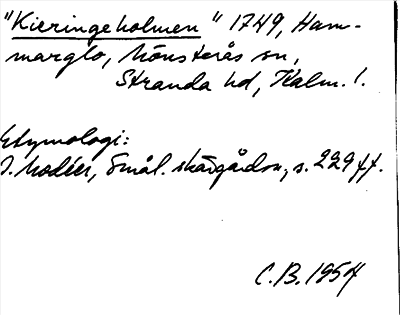 "Kieringeholmen" 1749, Ham-
marglo, Mönsterås sn,
Stranda hd, Kalm. l.
Etymologi:
I. Modéer, Smål. skärgårdsn, s. 229 ff.
C.B. 1954